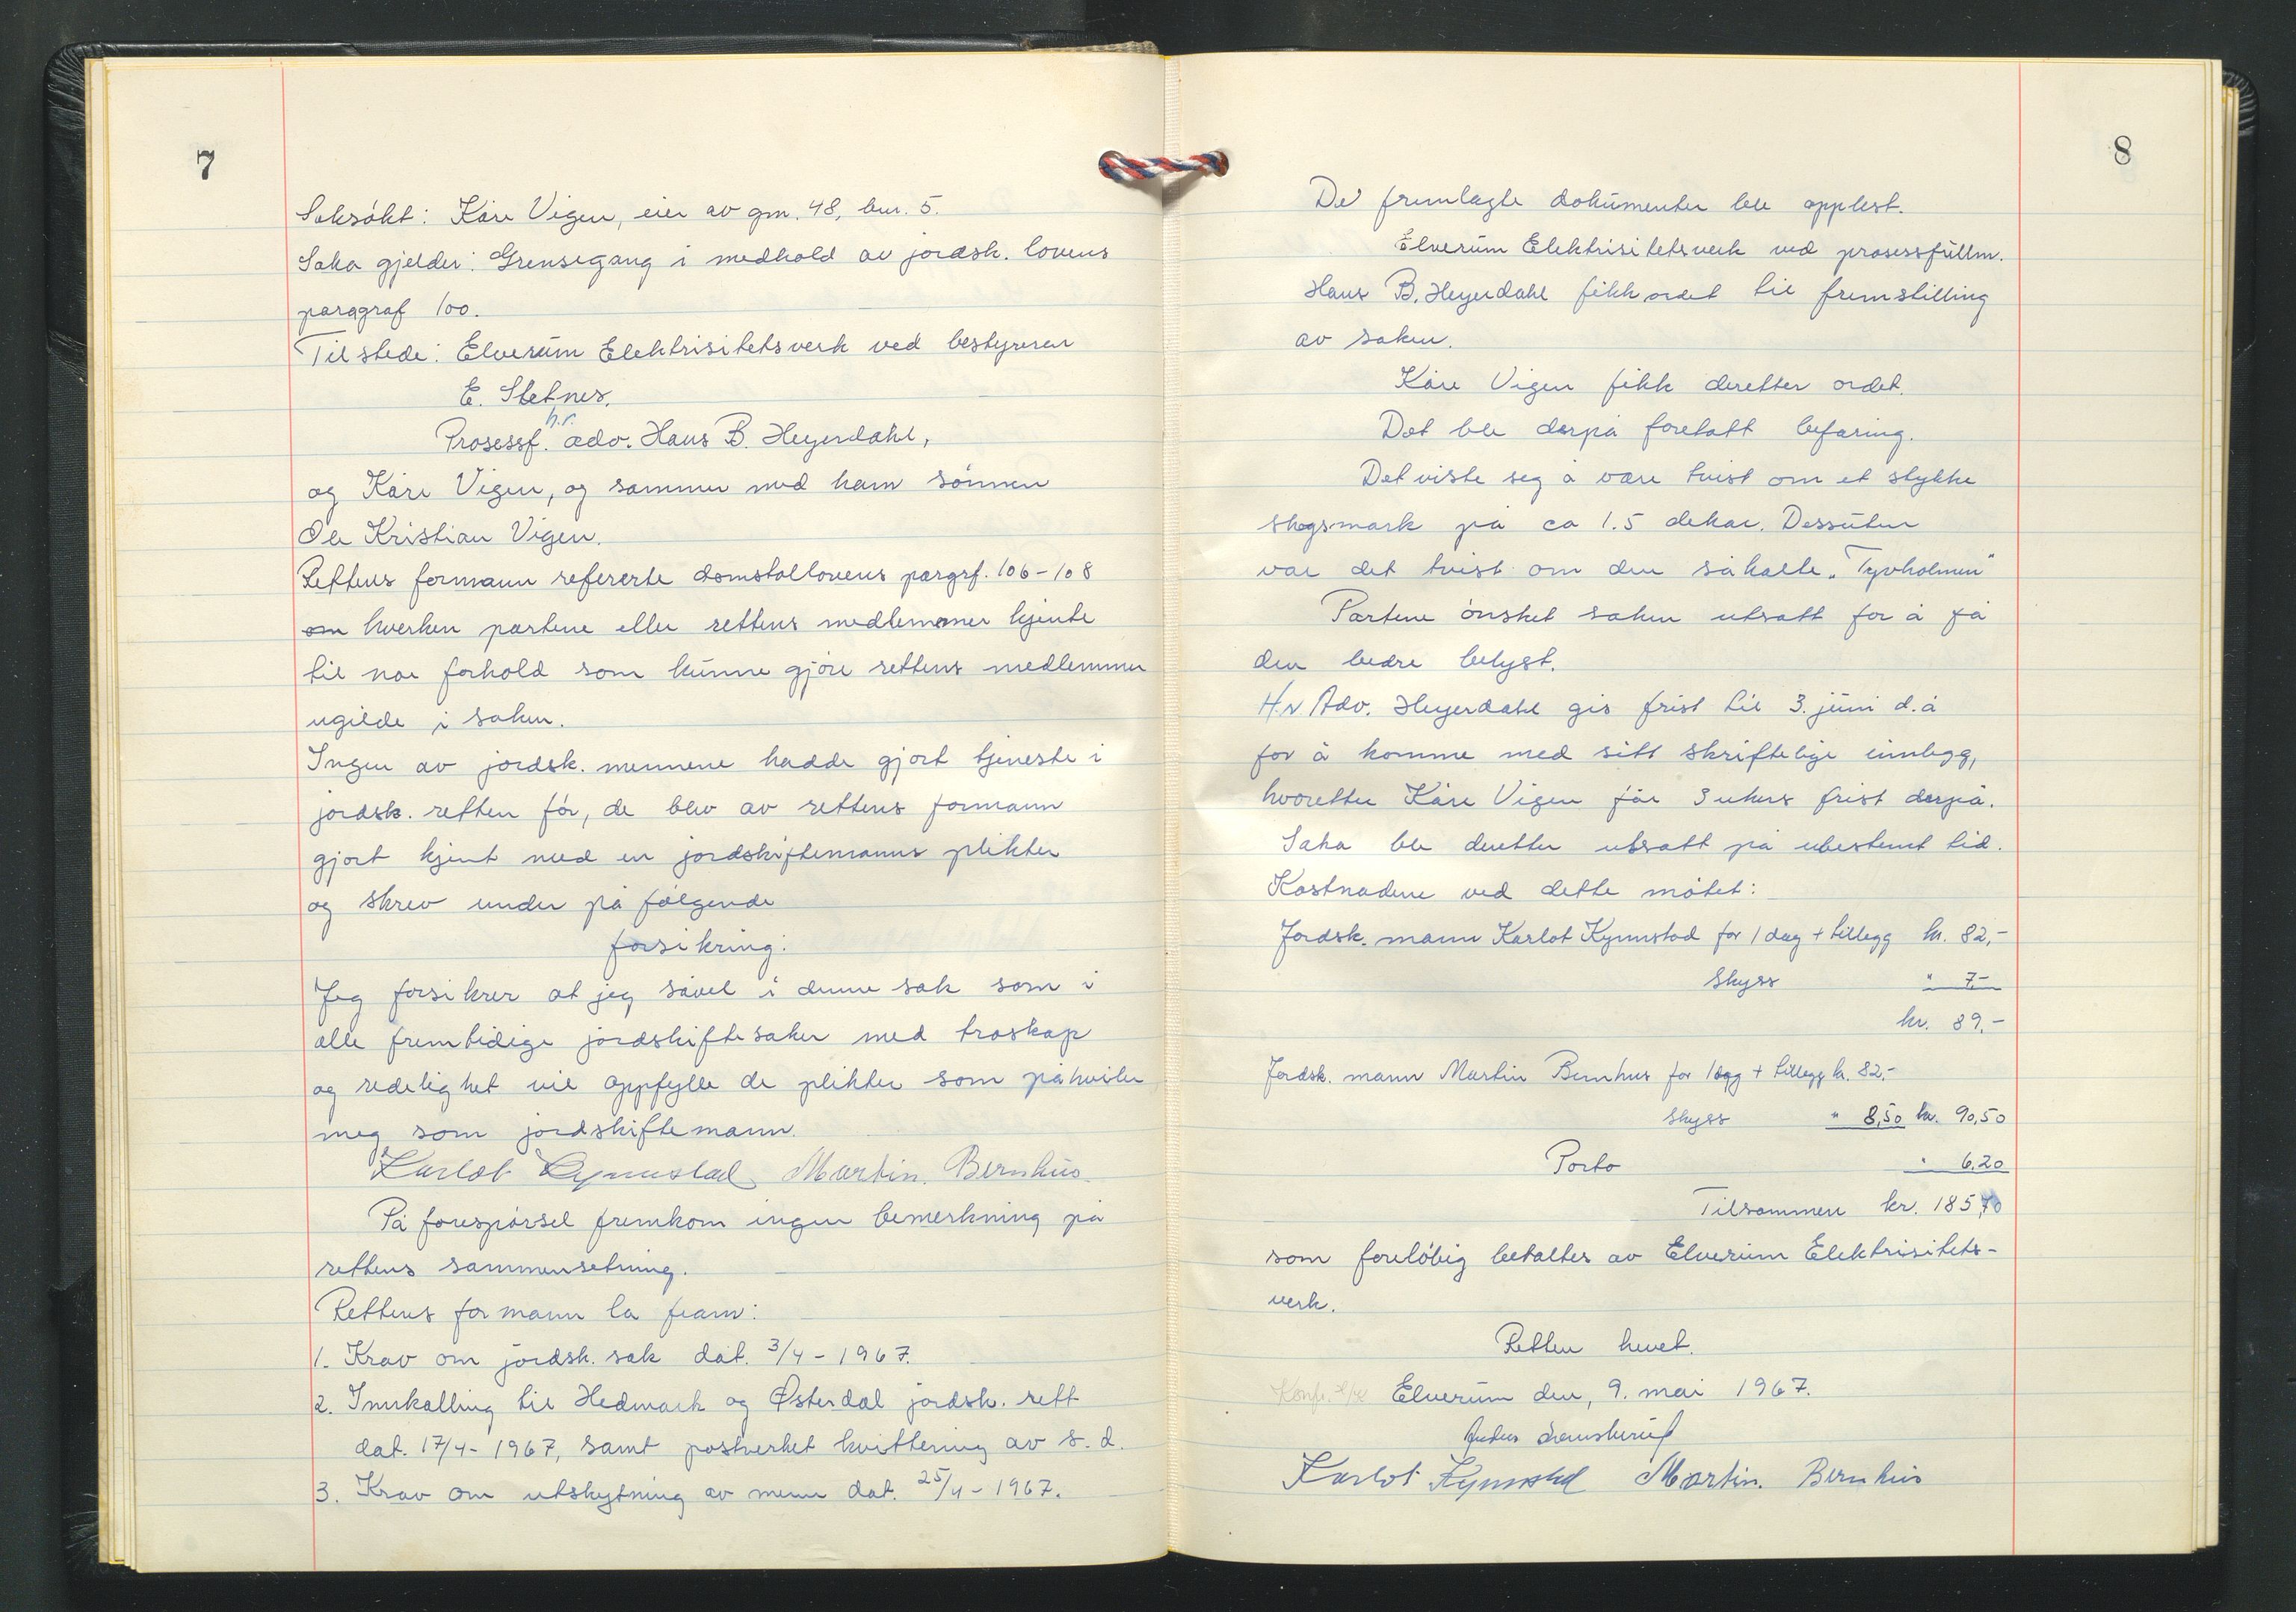 7
Saksøkt: Kåre Vigen, eier av gnr. 48, bnr. 5.
Saka gjelder: Grensegang i medhold av jordsk. lovens
paragraf 100.
Tilstede: Elverum Elektrisitetsverk ved bestyreren
E. Stetnes.
h.r.
Prosessf. adv. Hans B. Heyerdahl,
og Kåre Vigen, og sammen med ham sønnen
Ole Kristian Vigen.
Rettens formann refererte domstollovens pargrf. 106-108
om hverken partene eller rettens medlemmer kjente
til noe forhold som kunne gjøre rettens medlemmer
ugilde i saken.
Ingen av jordsk. mennene hadde gjort tjeneste i
jordsk. retten før, de blev av rettens formann
gjort kjent med en jordskiftemanns plikter
og skrev under på følgende
forsikring:
Jeg forsikrer at jeg såvel i denne sak som i
alle fremtidige jordskiftesaker med troskap
og redelighet vil oppfylle de plikter som påhviler
meg som jordskiftemann.
Karlot Kynnstad Martin. Bernhus
På forespørsel fremkom ingen bemerkning på
rettens sammensetning.
Rettens formann la fram:
1. Krav om jordsk. sak dat. 3/4 - 1967.
2. Innkalling til Hedmark og Østerdal jordsk. rett
dat. 17/4 - 1967, samt postverket kvittering av s. d.
3. Krav om utskytning av menn dat. 25/4 - 1967.
8
De fremlagte dokumenter ble opplest.
Elverum Elektrisitetsverk ved prosessfullm.
Hans B. Heyerdahl fikk ordet til fremstilling
av saken.
Kåre Vigen fikk deretter ordet.
Det ble derpå foretatt befaring.
Det viste seg å være tvist om et stykke
skogsmark på ca 1.5 dekar. Dessuten
var det tvist om den såkalte „Tyvholmen"
Partene ønsket saken utsatt for å få
den bedre belyst.
H.r Adv. Heyerdahl gis frist til 3. juni d.å
for å komme med sitt skriftelige innlegg,
hvoretter Kåre Vigen får 3 ukers frist derpå.
Saka ble deretter utsatt på ubestemt tid.
Kostnadene ved dette møtet:
Jordsk. mann Karlot Kynnstad for 1 dag + tillegg kr. 82,-
Skyss " 7,-
kr. 89.-
Jordsk. mann Martin Bernhus for 1dag + tillegg kr. 82,-
Skyss " 8,50 kr. 90,50
Porto " 6.20
Tilsammen kr. 185,70
som foreløbig betaltes av Elverum Elektrisitets-
verk.
Retten hevet.
Elverum den, 9. mai 1967.
Karlot Kynnstad Martin. Bernhus